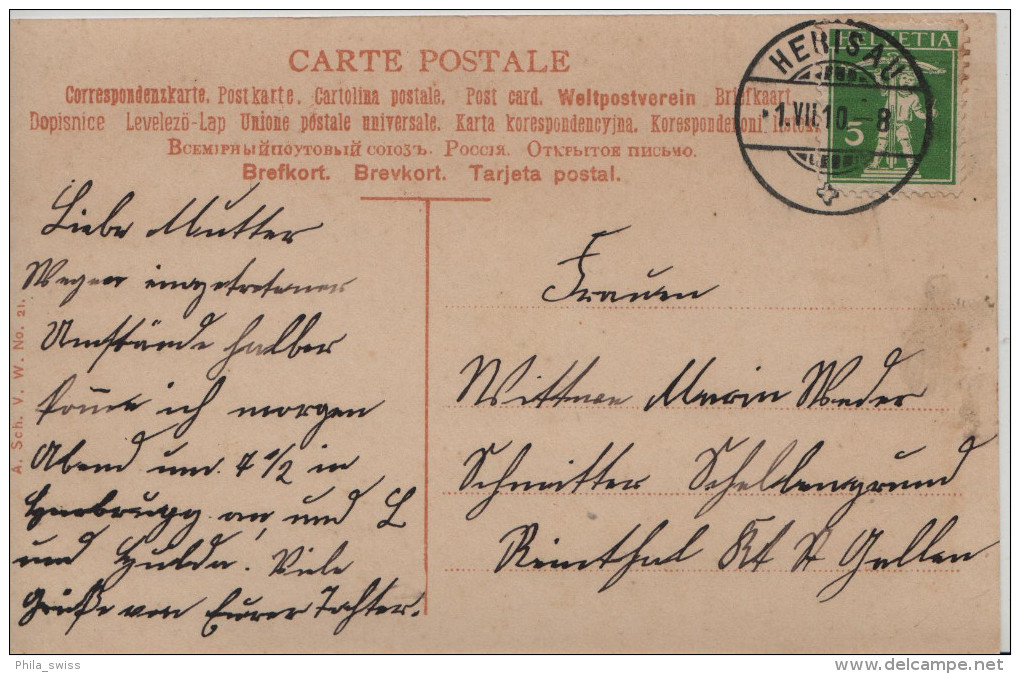 CARTE POSTALE
Correspondenzkarte. Postkarte. Cartolina postale. Post card. Weltpostverein Briefkaart
Dopisnice Levelezö-Lap Unione postale universale. Karta korespondencyjna. Korespondenční
Всемірныйпоутовый союзъ. Россія. Открытое письмо.
Brefkort. Brevkort. Tarjeta postal.
HELVETIA
5
HERISAU
1.VII.10. 8
A. Sch. V. W. No. 21.
Liebe Mutter
Wegen eingetretener
Umstände halber
kome ich morgen
Abend um 7 1/2 in
Heerbrugg an, und
und Hulda. Viele
Grüße von Eurer Tochter.
Frauen
Wittwe Maria Weder
Schmitter Schellengrund
Reinthal Kt St Gallen
Phila_swiss
delcampe.net